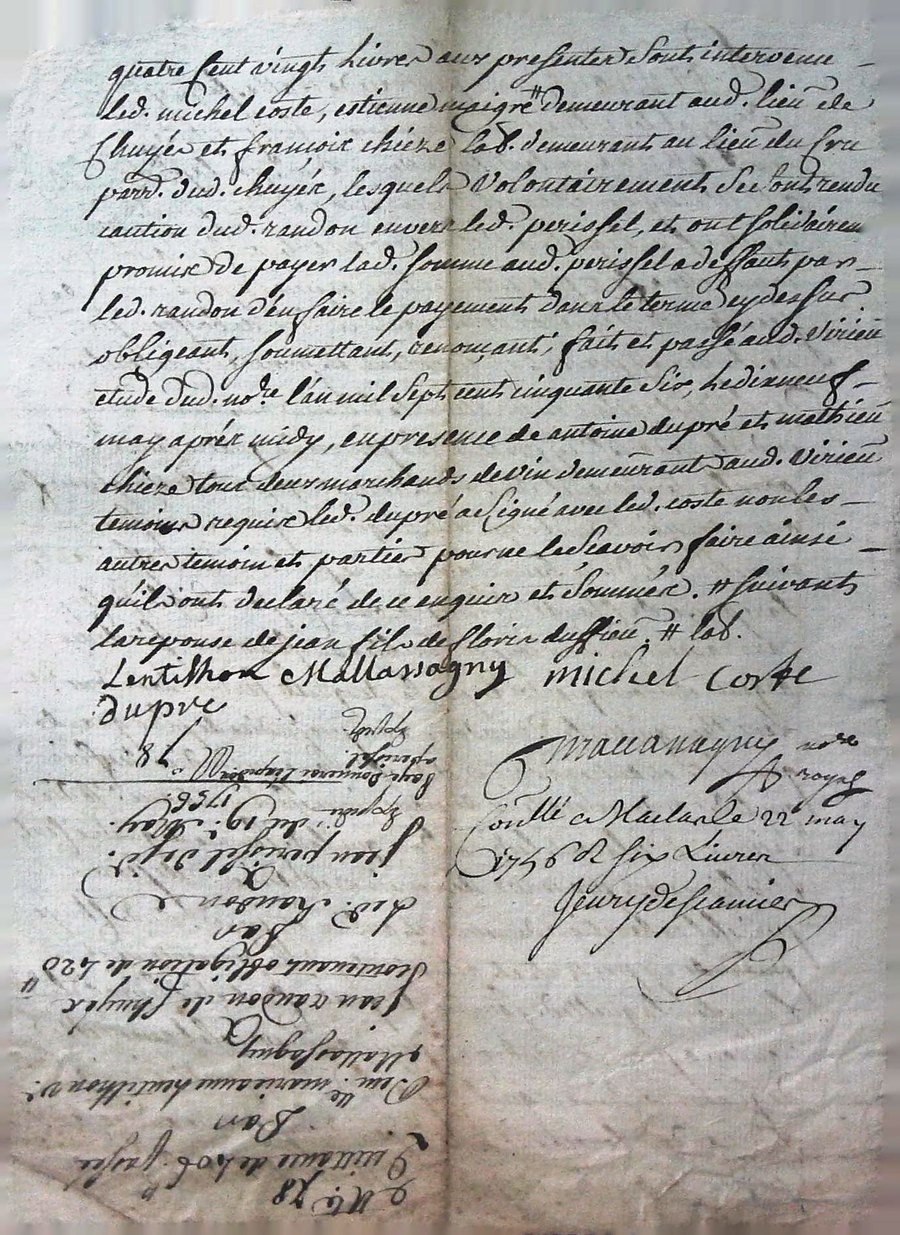 quatre Cent vingt Livres aux presentes Sont intervenu
led. michel coste, estienne maigre # demeurant aud. lieu de
Chuyér et françois chiéze lab. demeurant au lieu du Cru
parr. dud. chuyér, lesquels Volontairement Se Sont rendu
caution dud. randon envers led. perissel, et ont solidairem
promis de payer lad. somme aud. perissel a deffaut par
led. randon d'en faire le payement dans le terme cy dessus
obligeant, soumettant, renonçant, fait et passé aud. Virieu
etude dud. nore. l'an mil Sept cent cinquante Six, Le dixneuf
may aprés midy, en presence de antoine dupré et mathieu
chieze tous deux marchands de vin demeurant aud. Virieu
temoins requis led. dupré a Signé avec led. coste non les
autres temoin et parties pour ne le Scavoir faire ainsi
qu'ils ont declaré de ce enquis et Sommés. # Suivant
la reponse de jean fils de floris duffieu. # lab.
Lentilhon Mallassagny michel coste
dupre
Mallassagny nore
royal
Conlle a Maclas le 22 may
1756 R six Livres
Cotte 78
Quittance de passée
Par
Dem.lle marieanne Lentilhon ve
Mallassagny
a
jean randon de Chuyér
Contenant obligation de 420#
Par
Led. Randon
a
jean perissel dud.
du 19e. May.
1756.
78